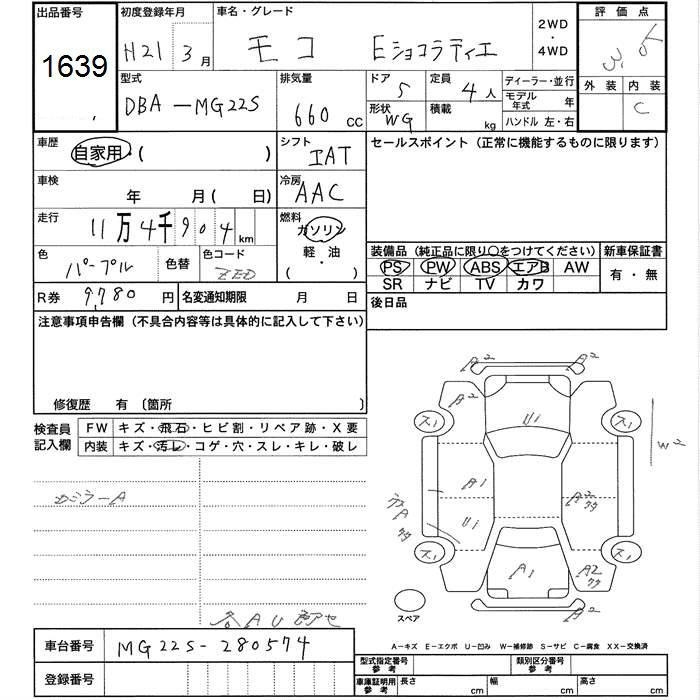 出品番号 初度登録年月 車名・グレード 2WD・4WD 評価点
1639 H21 3月 モコ Eショコラティエ 3.5
型式 排気量 ドア 5 定員 4人 ディーラー・並行 外装 内装
DBA-MG22S 660 cc 形状 WG 積載 kg モデル年式 年 C
ハンドル 左・右
車歴 自家用・( ) シフト IAT セールスポイント(正常に機能するものに限ります)
車検 年 月( 日) 冷房 AAC
走行 11万4千904km 燃料 ガソリン
軽・油
( ・ )
色 パープル 色替 色コード ZED 装備品(純正品に限り○をつけてください) 新車保証書
PS PW ABS エアB AW 有・無
SR ナビ TV カワ
R券 9,780円 名変通知期限 月 日 後日品
注意事項申告欄(不具合内容等は具体的に記入して下さい)
修復歴 有 〔箇所 〕
検査員記入欄 FW キズ・飛石・ヒビ割・リペア跡・X要
内装 キズ・汚レ・コゲ・穴・スレ・キレ・破レ
カミラーA
各AU
A2 A2
A2
スリ スリ
U1
A1
U1
A1
A2
スリ スリ
A2
スペア
車台番号 MG22S-280574
A−キズ E−エクボ U−凹み W−補修跡 S−サビ C−腐食 XX−交換済
登録番号
型式指定番号 参考 類別区分番号 参考
車庫証明用 参考 長さ cm 幅 cm 高さ cm